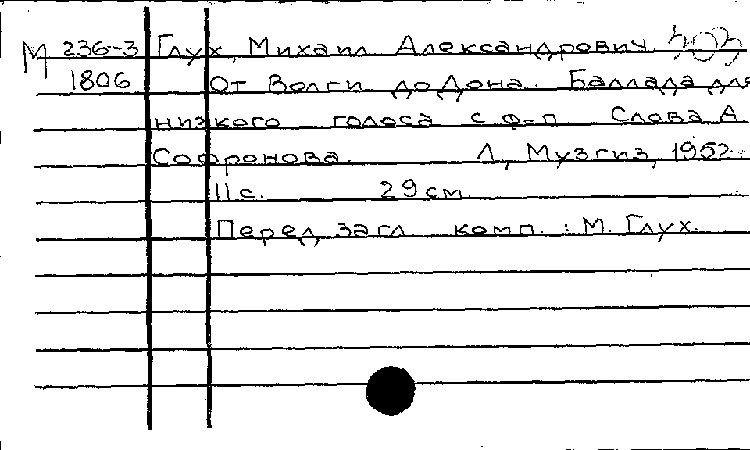 М 236-3 Глух, Михаил Александрович
1806 От Волги до Дона. Баллада для
низкого голоса с ф-п Слова А.
Софронова. Л, Музгиз, 1952.
11 с. 29 см
Перед загл комп.: М. Глух.